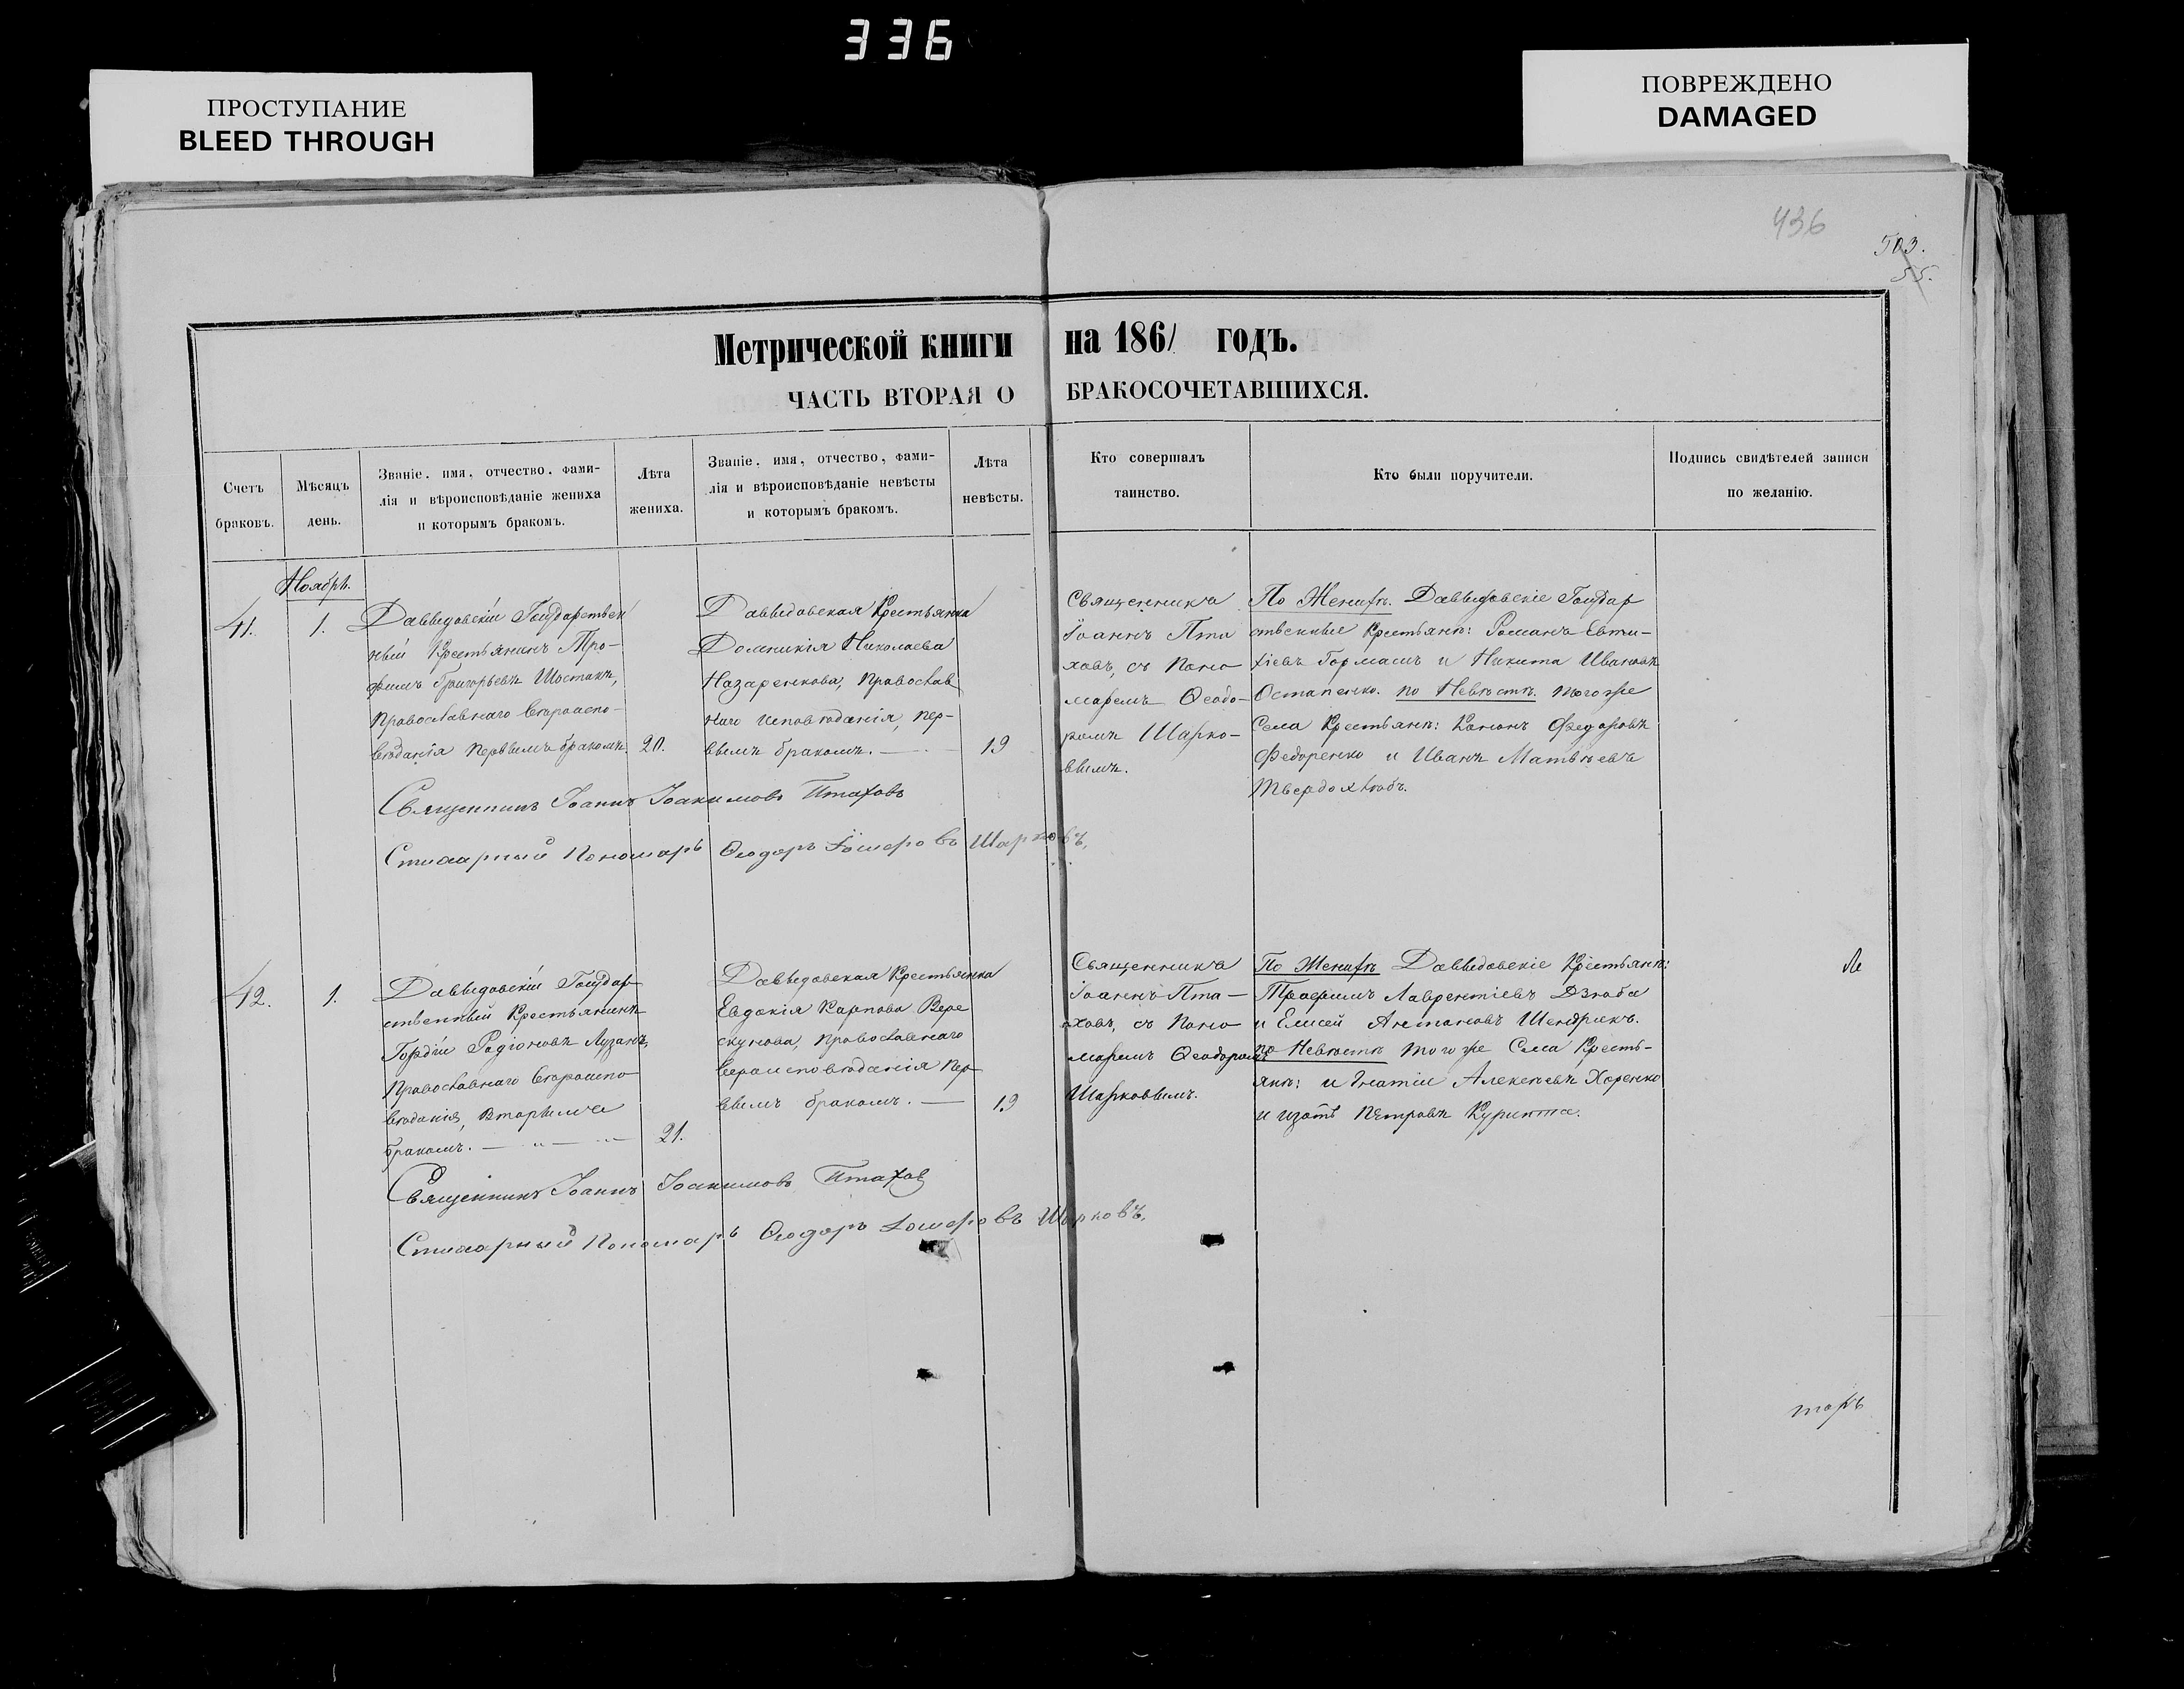 336
ПРОСТУПАНИЕ
BLEED THROUGH
ПОВРЕЖДЕНО
DAMAGED
436
503.
55.
Метрической книги на 186/ годъ.
ЧАСТЬ ВТОРАЯ О БРАКОСОЧЕТАВШИХСЯ.
Счетъ
браковъ.
Мѣсяцъ
день.
Званіе, имя, отчество, фами-
лія и вѣроисповѣданіе жениха
и которымъ бракомъ.
Лѣта
жениха.
Званіе, имя, отчество, фами-
лія и вѣроисповѣданіе невѣсты
и которымъ бракомъ.
Лѣта
невѣсты.
Кто совершалъ
таинство.
Кто были поручители.
Подпись свидѣтелей записи
по желанію.
Ноябрь.
41.
1.
Давыдовскій Государствен
ный Крестьянинъ Тро-
фимъ Григорьевъ Шостакъ,
Православнаго Вѣроиспо-
вѣданія первымъ бракомъ.
20.
Давыдовская Крестьянка
Домникія Николаева
Назаренкова, Православ
наго исповѣданія, пер-
вымъ бракомъ.
19
Священникъ
Іоаннъ Пта
ховъ, съ Поно
маремъ Ѳеодо-
ромъ Шарко-
вымъ.
По Женихѣ. Давыдовскіе Государ
ственные Крестьянѣ: Романъ Евти-
хіевъ Гормашъ и Никита Ивановъ
Остапенко. по Невѣстѣ. того же
Села Крестьянѣ: Кононъ Федоровъ
Федоренко и Иванъ Матвѣевъ
Твердохлѣбъ.
Священникъ Іоаннъ Іоакимовъ Птаховъ
Стихарный Пономарь Ѳеодоръ Шарковъ,
42.
1.
Давыдовскій Государ
ственный Крестьянинъ
Гордій Родіоновъ Лузанъ,
Православнаго Вѣроиспо
вѣданія, Вторымъ
бракомъ. — " — " —
21.
Давыдовская Крестьянка
Евдокія Карпова Вере
скунова, Православнаго
Вероисповѣданія Пер
вымъ бракомъ. —
19
Священникъ
Іоаннъ Пта —
ховъ, съ Поно
маремъ Ѳеодоромъ
Шарковымъ.
По Женихѣ Давыдовскіе Крестьянѣ:
Трофимъ Лаврентіевъ Дзюба
и Елисей Антоновъ Шендрикъ.
по Невѣстѣ того же Села Кресть-
янѣ: Игнатій Алексѣевъ Хоренко
и Изотъ Петровъ Курипта.
Священникъ Іоаннъ Іоакимовъ Птахов
Стихарный Пономарь Ѳеодоръ Шарковъ,